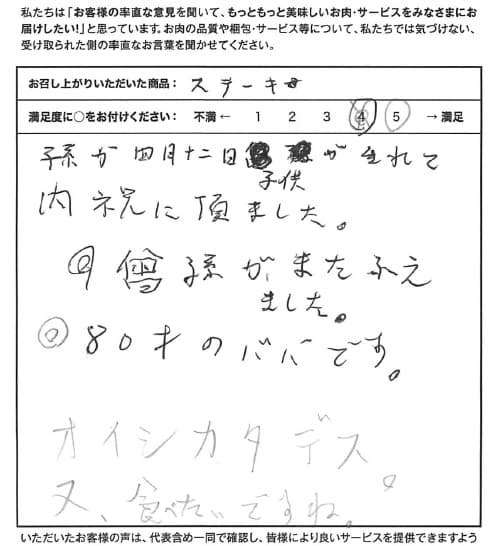 私たちは「お客様の率直な意見を聞いて、もっともっと美味しいお肉・サービスをみなさまにお
届けしたい！」と思っています。お肉の品質や梱包・サービス等について、私たちでは気づけない、
受け取られた側の率直なお言葉を聞かせてください。
お召し上がりいただいた商品： ステーキ
満足度に○をお付けください： 不満 ← 1 2 3 4 5 → 満足
孫が四月十二日 が生れて
子供
内祝に頂ました。
孫がまたふえ
ました。
◎80才のババです。
オイシカタデス。
又、食べたいですね。
いただいたお客様の声は、代表含め一同で確認し、皆様により良いサービスを提供できますよう